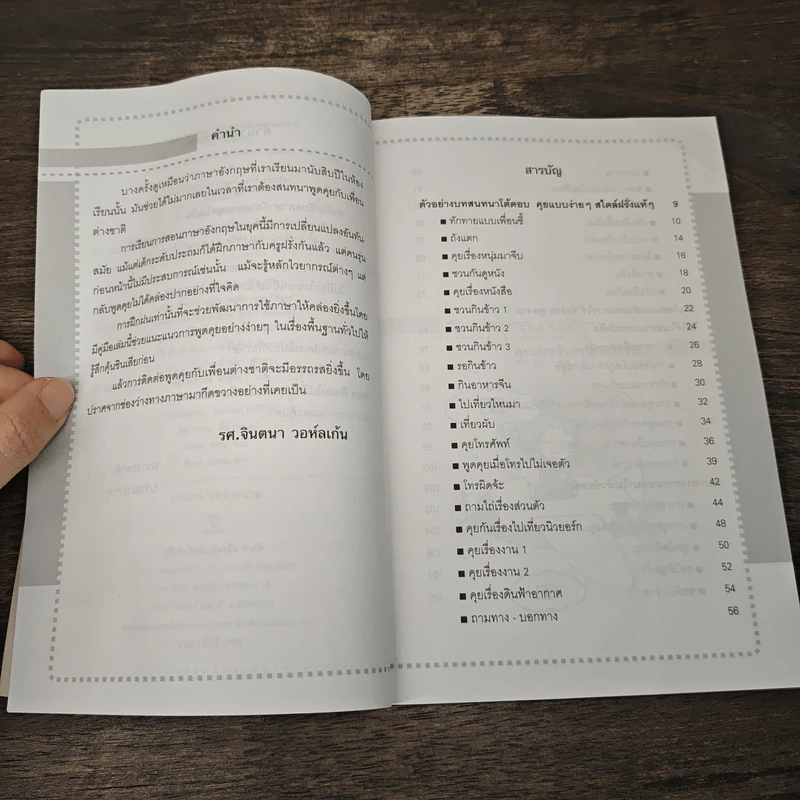 คำนำ
บางครั้งดูเหมือนว่าภาษาอังกฤษที่เราเรียนมานับสิบปีในห้อง
เรียนนั้น มันช่วยได้ไม่มากเลยในเวลาที่เราต้องสนทนาพูดคุยกับเพื่อน
ต่างชาติ
การเรียนการสอนภาษาอังกฤษในยุคนี้มีการเปลี่ยนแปลงอันทัน
สมัย แม้แต่เด็กระดับประถมก็ได้ฝึกภาษากับครูฝรั่งกันแล้ว แต่คนรุ่น
ก่อนหน้านี้ไม่มีประสบการณ์เช่นนั้น แม้จะรู้หลักไวยากรณ์ต่างๆ แต่
กลับพูดคุยไม่ได้คล่องปากอย่างที่ใจคิด
การฝึกฝนเท่านั้นที่จะช่วยพัฒนาการใช้ภาษาให้คล่องยิ่งขึ้นโดย
มีคู่มือเล่มนี้ช่วยแนะแนวการพูดคุยอย่างง่ายๆ ในเรื่องพื้นฐานทั่วไปให้
รู้สึกคุ้นชินเสียก่อน
แล้วการติดต่อพูดคุยกับเพื่อนต่างชาติจะมีอรรถรสยิ่งขึ้น โดย
ปราศจากช่องว่างทางภาษามากีดขวางอย่างที่เคยเป็น
รศ.จินตนา วอห์ลเก้น
สารบัญ
ตัวอย่างบทสนทนาโต้ตอบ คุยแบบง่ายๆ สไตล์ฝรั่งแท้ๆ 9
■ ทักทายแบบเพื่อนซี้ 10
■ ถังแตก 14
■ คุยเรื่องหนุ่มมาจีบ 16
■ ชวนกันดูหนัง 18
■ คุยเรื่องหนังสือ 20
■ ชวนกินข้าว 1 22
■ ชวนกินข้าว 2 24
■ ชวนกินข้าว 3 26
■ รอกินข้าว 28
■ กินอาหารจีน 30
■ ไปเที่ยวไหนมา 32
■ เที่ยวผับ 34
■ คุยโทรศัพท์ 36
■ พูดคุยเมื่อโทรไปไม่เจอตัว 39
■ โทรผิดจ้ะ 42
■ ถามไถ่เรื่องส่วนตัว 44
■ คุยกันเรื่องไปเที่ยวนิวยอร์ก 48
■ คุยเรื่องงาน 1 50
■ คุยเรื่องงาน 2 52
■ คุยเรื่องดินฟ้าอากาศ 54
■ ถามทาง - บอกทาง 56